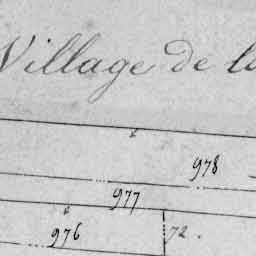 Village de
978
977
976
72.